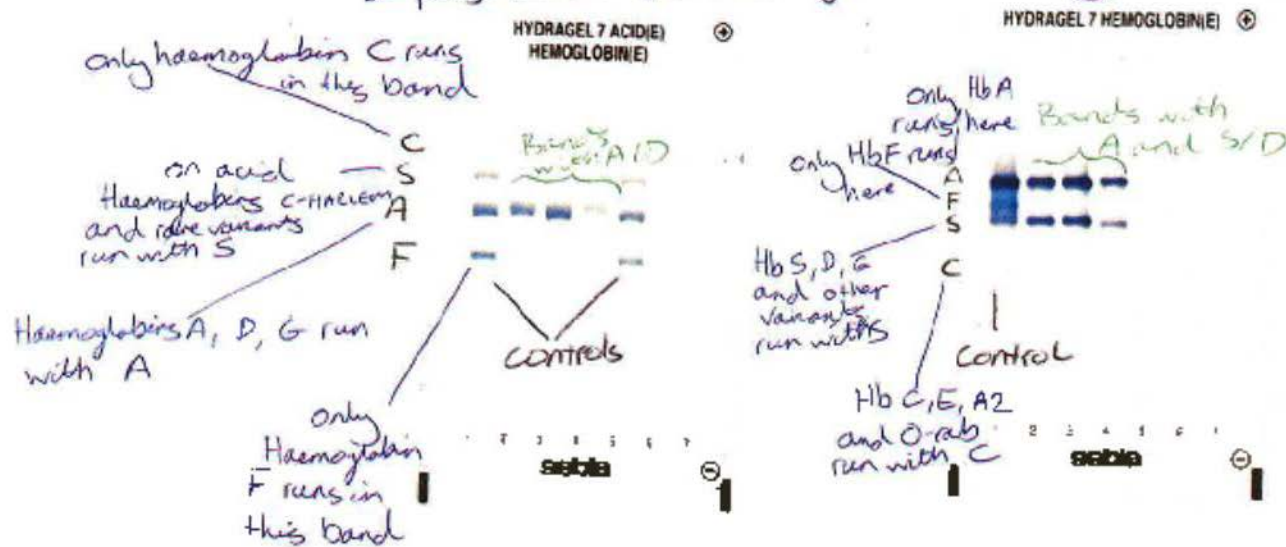 HYDRAGEL 7 ACID(E)
HEMOGLOBIN(E)
+
only haemoglobin C runs
in this band
C
S
A
F
on acid
Haemoglobins C-HARLEM
and rare variants
run with S
Bands
with A/D
Haemoglobins A, D, G run
with A
controls
only
Haemoglobin
F runs in
this band
2 3 4 5 6 7
sebia
-
HYDRAGEL 7 HEMOGLOBIN(E)
+
only HbA
runs here
only HbF runs
here
Bands with
A and S/D
A
F
S
C
Hb S, D, G
and other
variants
run with S
Control
Hb C, E, A2
and O-rab
run with C
2 3 4 5 6 7
sebia
-